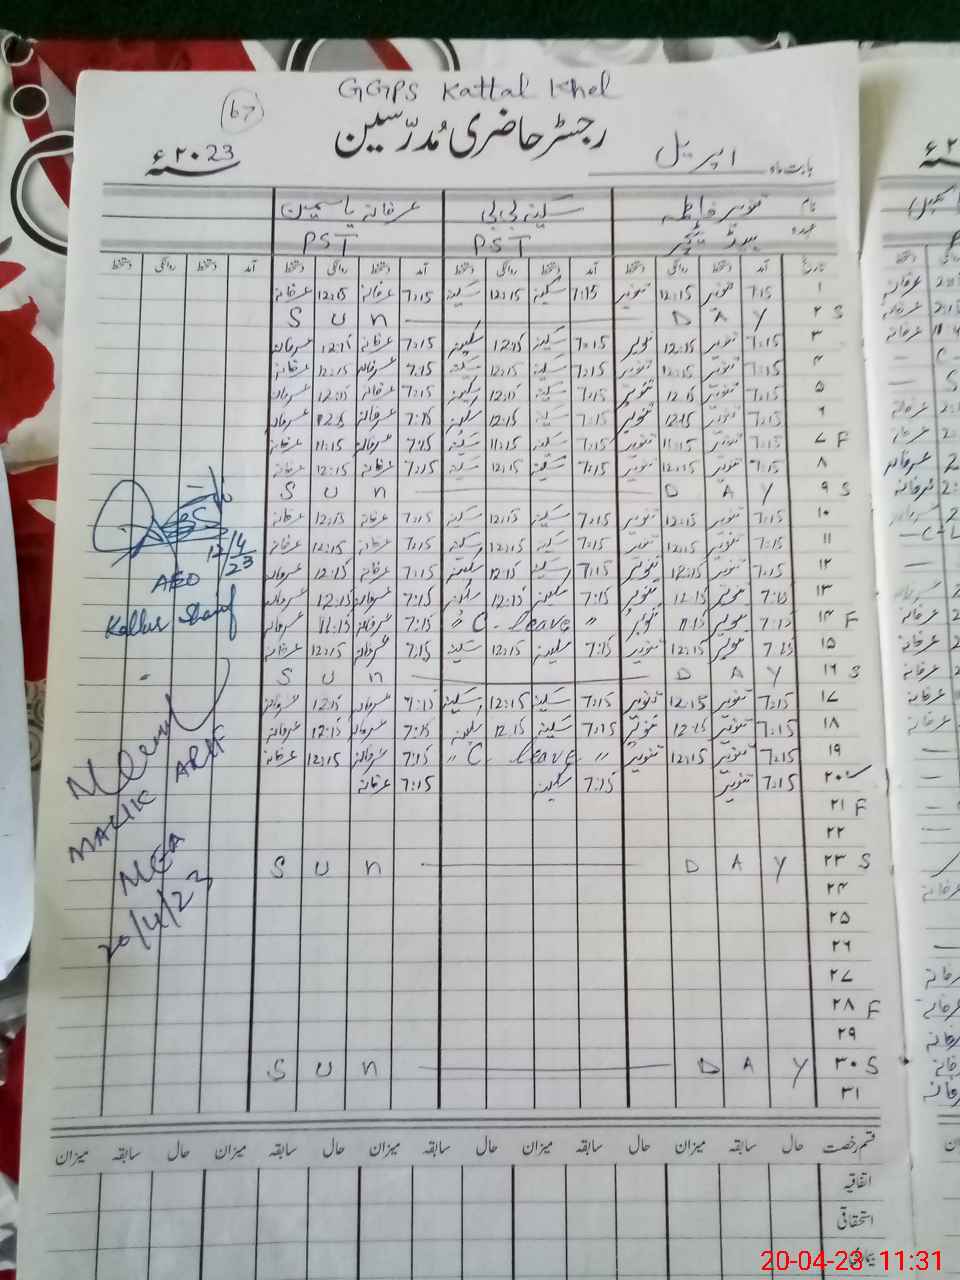 GGPS Kattal Khel
67
رجسٹر حاضری مُدرّسین
بابت ماہ اپریل سنہ ۲۰23ء
نام تنویر فاطمہ سکینہ بی بی عرفانہ یاسمین
عہدہ ہیڈ ٹیچر PST PST
تاریخ آمد دستخط روانگی دستخط آمد دستخط روانگی دستخط آمد دستخط روانگی دستخط آمد دستخط روانگی دستخط
۱ 7:15 تنویر 12:15 تنویر 7:15 سکینہ 12:15 سکینہ 7:15 عرفانہ 12:15 عرفانہ
۲ S SUn DAY
۳ 7:15 تنویر 12:15 تنویر 7:15 سکینہ 12:15 سکینہ 7:15 عرفانہ 12:15 عرفانہ
۴ 7:15 تنویر 12:15 تنویر 7:15 سکینہ 12:15 سکینہ 7:15 عرفانہ 12:15 عرفانہ
۵ 7:15 تنویر 12:15 تنویر 7:15 سکینہ 12:15 سکینہ 7:15 عرفانہ 12:15 عرفانہ
۶ 7:15 تنویر 12:15 تنویر 7:15 سکینہ 12:15 سکینہ 7:15 عرفانہ 12:15 عرفانہ
۷ F 7:15 تنویر 11:15 تنویر 7:15 سکینہ 11:15 سکینہ 7:15 عرفانہ 11:15 عرفانہ
۸ 7:15 تنویر 12:15 تنویر 7:15 سکینہ 12:15 سکینہ 7:15 عرفانہ 12:15 عرفانہ
۹ S SUn DAY
۱۰ 7:15 تنویر 12:15 تنویر 7:15 سکینہ 12:15 سکینہ 7:15 عرفانہ 12:15 عرفانہ
۱۱ 7:15 تنویر 12:15 تنویر 7:15 سکینہ 12:15 سکینہ 7:15 عرفانہ 12:15 عرفانہ
۱۲ 7:15 تنویر 12:15 تنویر 7:15 سکینہ 12:15 سکینہ 7:15 عرفانہ 12:15 عرفانہ
۱۳ 7:15 تنویر 12:15 تنویر 7:15 سکینہ 12:15 سکینہ 7:15 عرفانہ 12:15 عرفانہ
۱۴ F 7:15 تنویر 11:15 تنویر " C. leave " 7:15 عرفانہ 11:15 عرفانہ
۱۵ 7:15 تنویر 12:15 تنویر 7:15 سکینہ 12:15 سکینہ 7:15 عرفانہ 12:15 عرفانہ
۱۶ S SUn DAY
۱۷ 7:15 تنویر 12:15 تنویر 7:15 سکینہ 12:15 سکینہ 7:15 عرفانہ 12:15 عرفانہ
۱۸ 7:15 تنویر 12:15 تنویر 7:15 سکینہ 12:15 سکینہ 7:15 عرفانہ 12:15 عرفانہ
۱۹ 7:15 تنویر 12:15 تنویر " C. leave " 7:15 عرفانہ 12:15 عرفانہ
۲۰ 7:15 تنویر 7:15 سکینہ 7:15 عرفانہ
۲۱ F
۲۲
۲۳ S SUn DAY
۲۴
۲۵
۲۶
۲۷
۲۸ F
۲۹
۳۰ S SUn DAY
۳۱
12/4/23
AEO
Kallur Sharif
MALIK ARIF
MEA
20/4/23
قسم رخصت حال سابقہ میزان حال سابقہ میزان حال سابقہ میزان حال سابقہ میزان
اتفاقیہ
استحقاقی
20-04-23 11:31